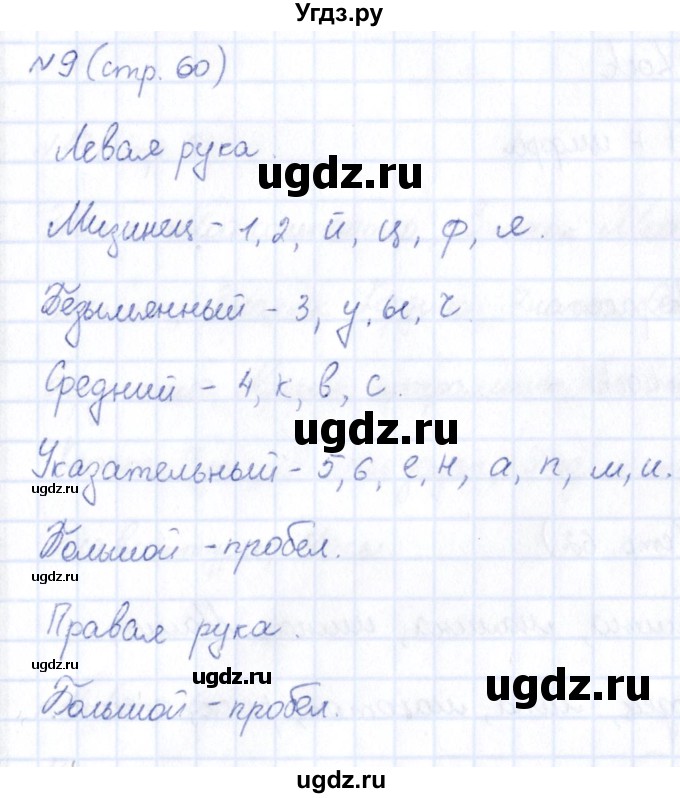 Угдз.ру
№9 (стр. 60)
Левая рука.
ugdz.ru
Мизинец - 1, 2, й, ц, ф, я.
Безымянный - 3, у, ы, ч
Средний - 4, к, в, с.
ugdz.ru
Указательный - 5, 6, е, н, а, п, м, и.
ugdz.ru
Большой - пробел.
ugdz.ru
Правая рука.
ugdz.ru
ugdz.ru
Большой - пробел.
ugdz.ru
ugdz.ru